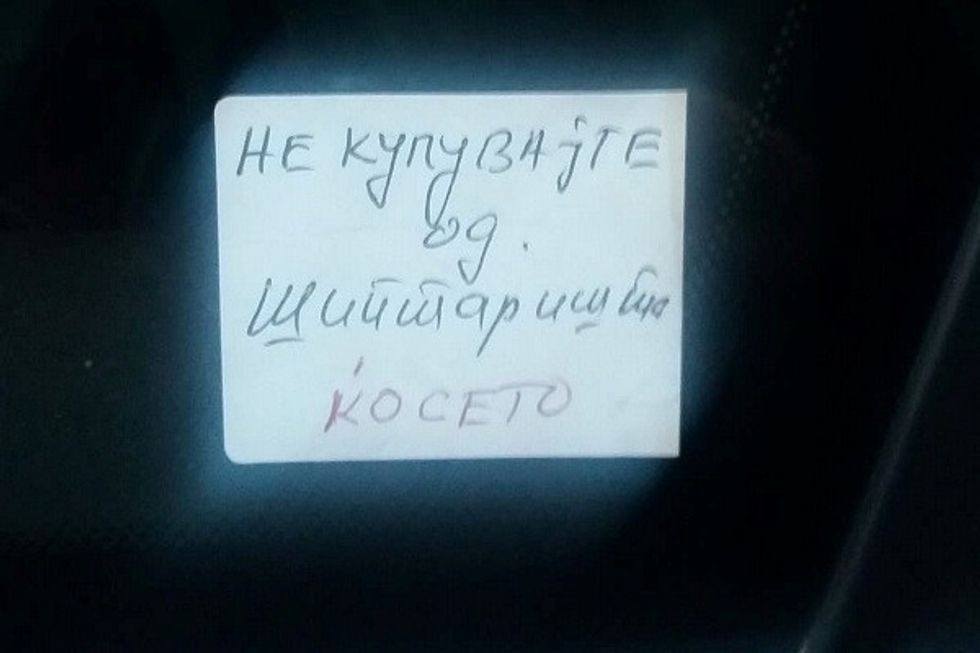 НЕ КУПУВАЈТЕ
ОД.
Шиптаришта
КОСЕТО